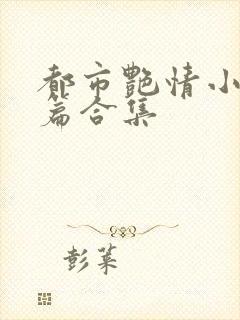 都市艳情小
篇合集
彭菜